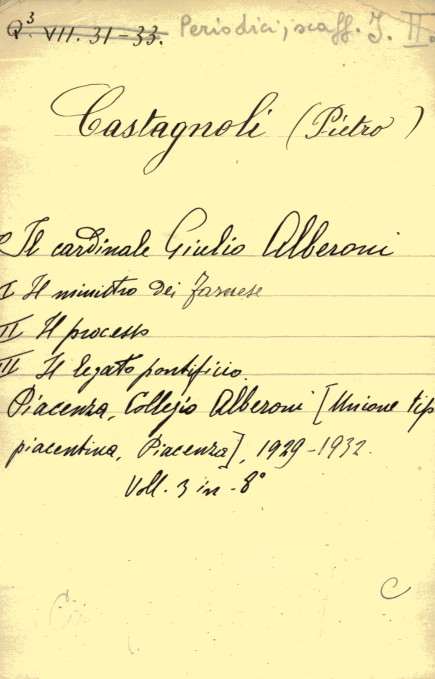 Q³. VII. 31-33. Periodici, scaff. J. II.
Castagnoli (Pietro)
Il cardinale Giulio Alberoni
I Il ministro dei Farnese
II Il processo
III Il legato pontificio
Piacenza, Collegio Alberoni [Unione tip
piacentina, Piacenza], 1929-1932.
Voll. 3 in-8°
C